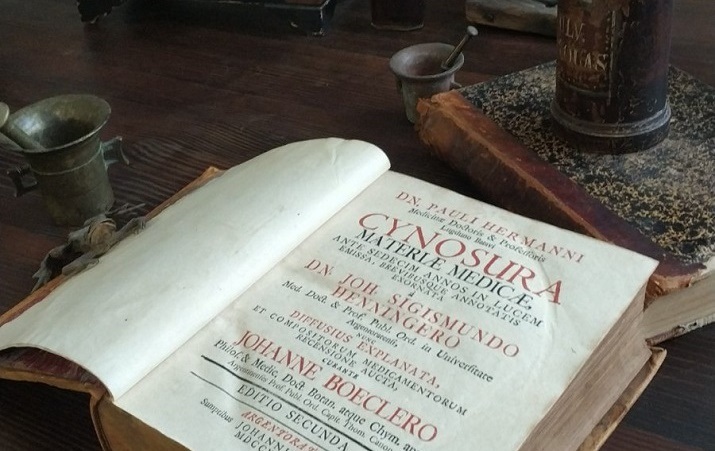 DN. PAULI HERMANNI
Medicinæ Doctoris & Professoris
Lugduno Batavi
CYNOSURA
MATERIÆ MEDICÆ
ANTE SEDECIM ANNOS IN LUCEM
EMISSA, BREVIBUSQUE ANNOTATIS
EXORNATA
à
DN. JOH. SIGISMUNDO
HENNINGERO
Med. Doct. & Prof. Publ. Ord. in Universitate
Argentoratensi
NUNC
DIFFUSIUS EXPLANATA,
ET COMPOSITORUM MEDICAMENTORUM
RECENSIONE AUCTA,
CURANTE
JOHANNE BOECLERO
Philos. & Medic. Doct. æque Chym.
Argentinensis Prof. Publ. Ord. Capit. Thom. Canon
EDITIO SECUNDA
ARGENTORATI
Sumptibus JOHANNIS